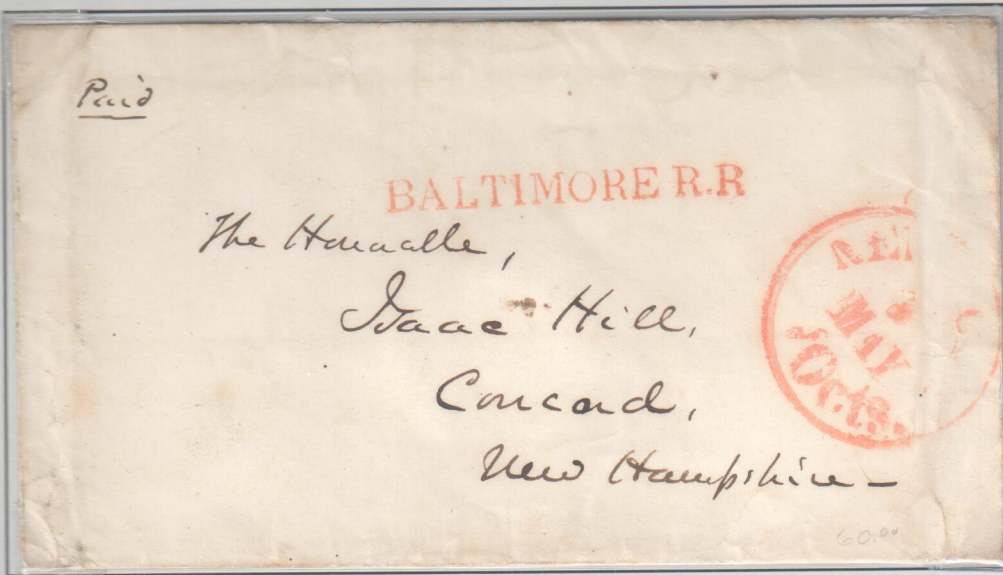 Paid
BALTIMORE R.R
The Honoralle,
Isaac Hill,
Concord,
New Hampshire –
MAY
10 cts.
60.00